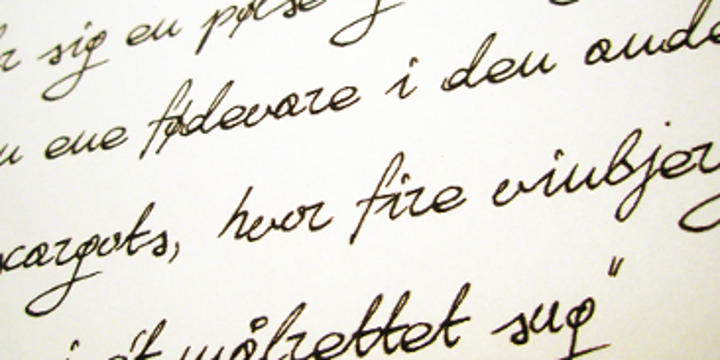 sig en pølse
ene fødevare i den ande
kargots, hvor fire vinbjer
i ét målrettet sug"